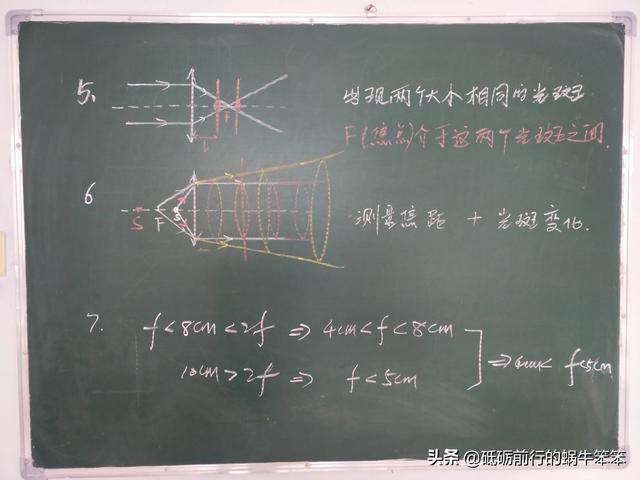 5、
F
L
出现两个大小相同的光斑
F(焦点)介于这两个光斑之间.
6
S F S
测量焦距 + 光斑变化.
7. f<8cm<2f ⇒ 4cm<f<8cm
10cm>2f ⇒ f<5cm
⇒4cm< f<5cm
头条 @砥砺前行的蜗牛笨笨